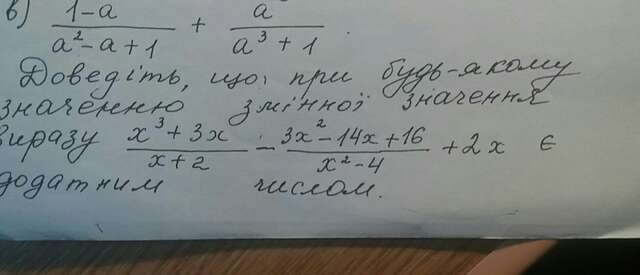 в) (1-a)/(a²-a+1) + a/(a³+1)
Доведіть, що при будь-якому
значенню змінної значення
виразу (x³+3x)/(x+2) - (3x²-14x+16)/(x²-4) + 2x є
додатним числом.